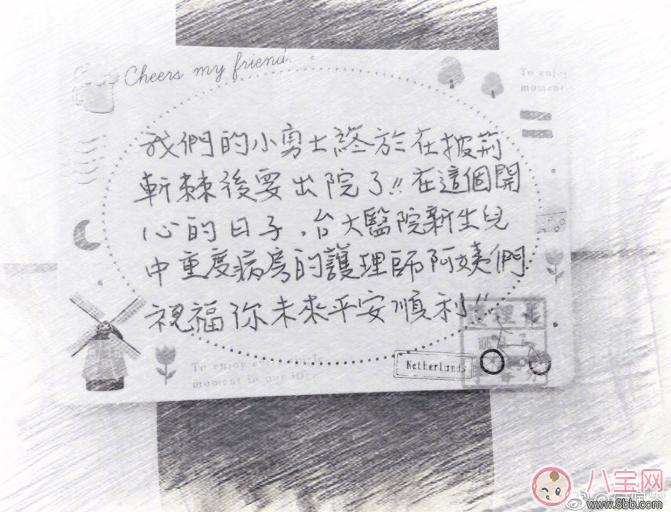 Cheers my friend
To enjoy
moment
我們的小勇士終於在披荊
斬棘後要出院了!!在這個開
心的日子,台大醫院新生兒
中重度病房的護理師阿姨們
祝福你未來平安順利!!
To enjoy
moment in our life
Netherlands
八宝网
www.8bb.com